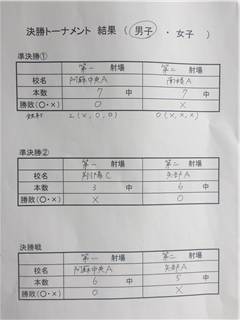 決勝トーナメント 結果 ( 男子 ・ 女子 )
準決勝①
第一 射場 第二 射場
校名 阿蘇中央A
本数 7 中 7 中
勝敗(○・×) ○ ×
2(×,○,○) 0(×,×,×)
準決勝②
第一 射場 第二 射場
校名 C 矢部A
本数 3 中 6 中
勝敗(○・×) × ○
決勝戦
第一 射場 第二 射場
校名 阿蘇中央A 矢部A
本数 6 中 5 中
勝敗(○・×) ○ ×